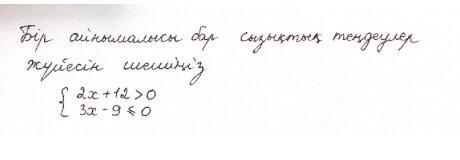 Бір айнымалысы бар сызықтық теңдеулер
жүйесін шешіңіз
{ 2x + 12 > 0
3x - 9 ⩽ 0